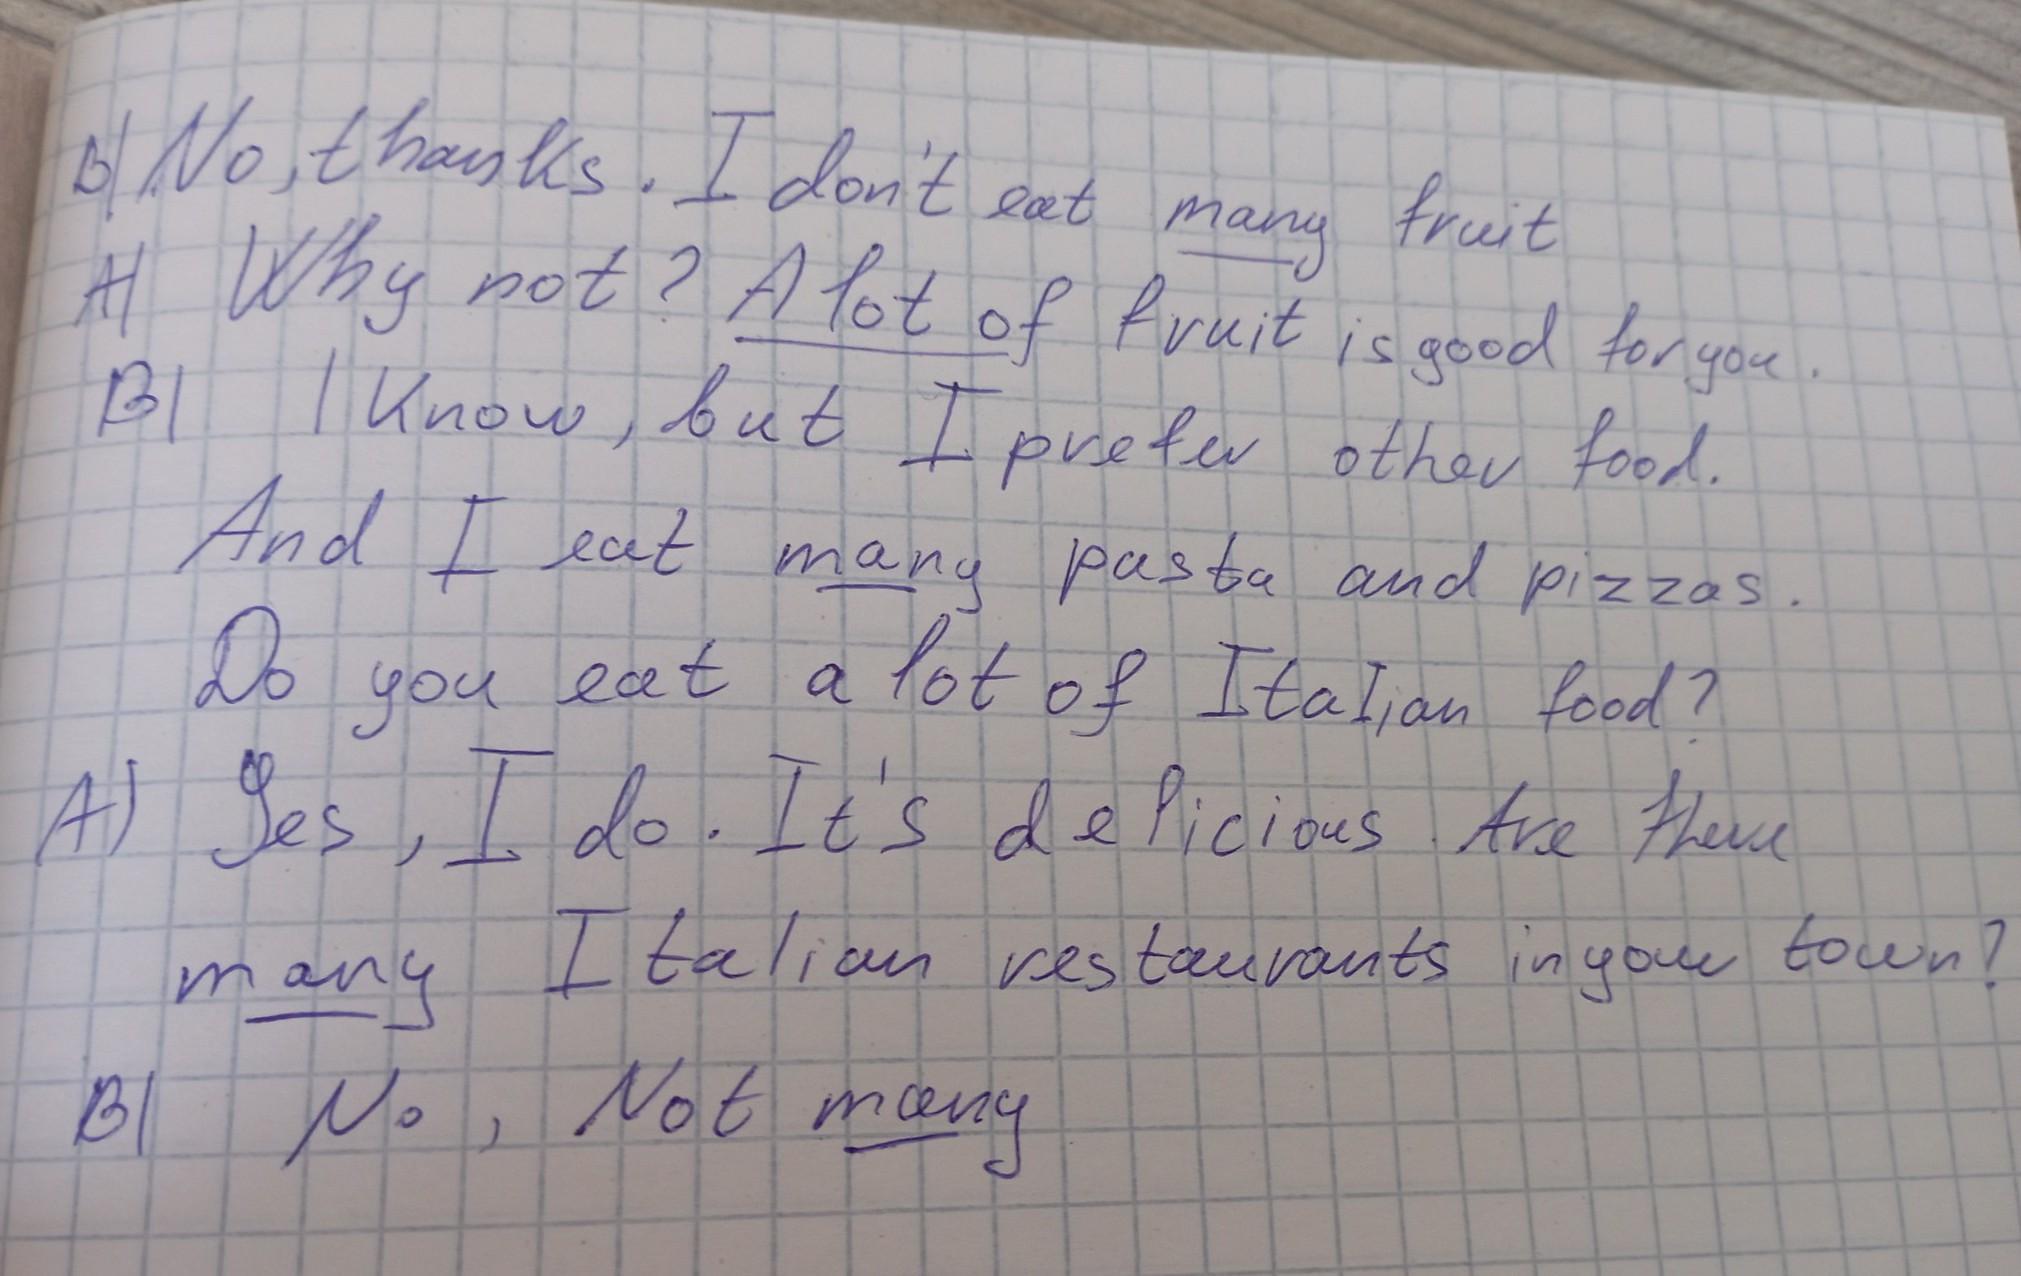 B) No, thanks. I don't eat many fruit
A) Why not? A lot of fruit is good for you.
B) I know, but I prefer other food.
And I eat many pasta and pizzas.
Do you eat a lot of Italian food?
A) Yes, I do. It's delicious. Are there
many Italian restaurants in your town?
B) No, Not many